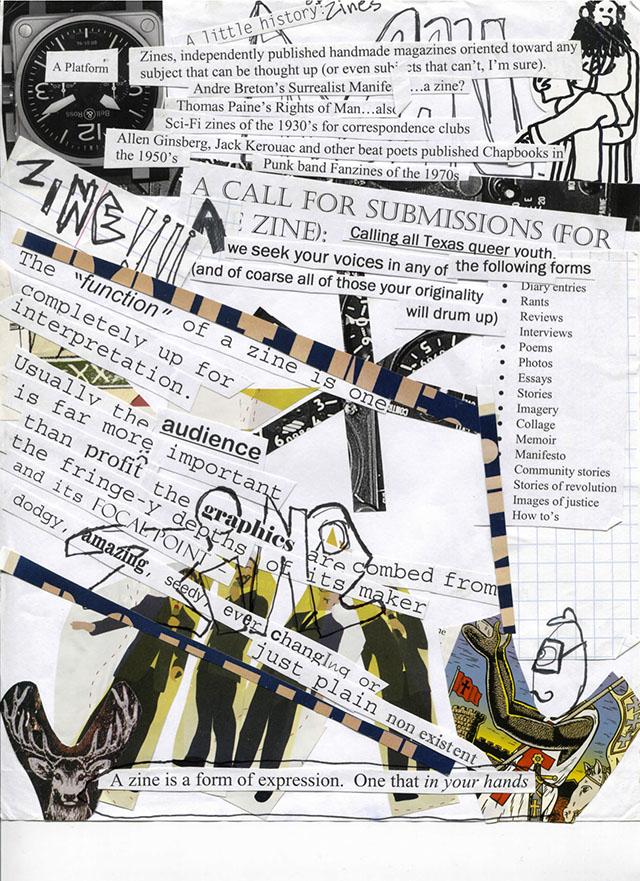 A little history: zines
A Platform
Zines, independently published handmade magazines oriented toward any
subject that can be thought up (or even subjects that can't, I'm sure).
Andre Breton's Surrealist Manife …a zine?
Thomas Paine's Rights of Man…also
Sci-Fi zines of the 1930's for correspondence clubs
Allen Ginsberg, Jack Kerouac and other beat poets published Chapbooks in
the 1950's
Punk band Fanzines of the 1970s
12
Bell & Ross
ZINE
A CALL FOR SUBMISSIONS (FOR
A ZINE):
Calling all Texas queer youth.
we seek your voices in any of the following forms
(and of coarse all of those your originality
will drum up)
• Diary entries
• Rants
Reviews
• Interviews
• Poems
• Photos
• Essays
• Stories
• Imagery
• Collage
• Memoir
• Manifesto
Community stories
Stories of revolution
Images of justice
How to's
The "function" of a zine is one
completely up for
interpretation.
Usually the audience
is far more important
than profit the graphics are combed from
the fringe-y depths of its maker
and its FOCAL POINT
dodgy, amazing, seedy, ever changing or
just plain non existent
A zine is a form of expression. One that in your hands